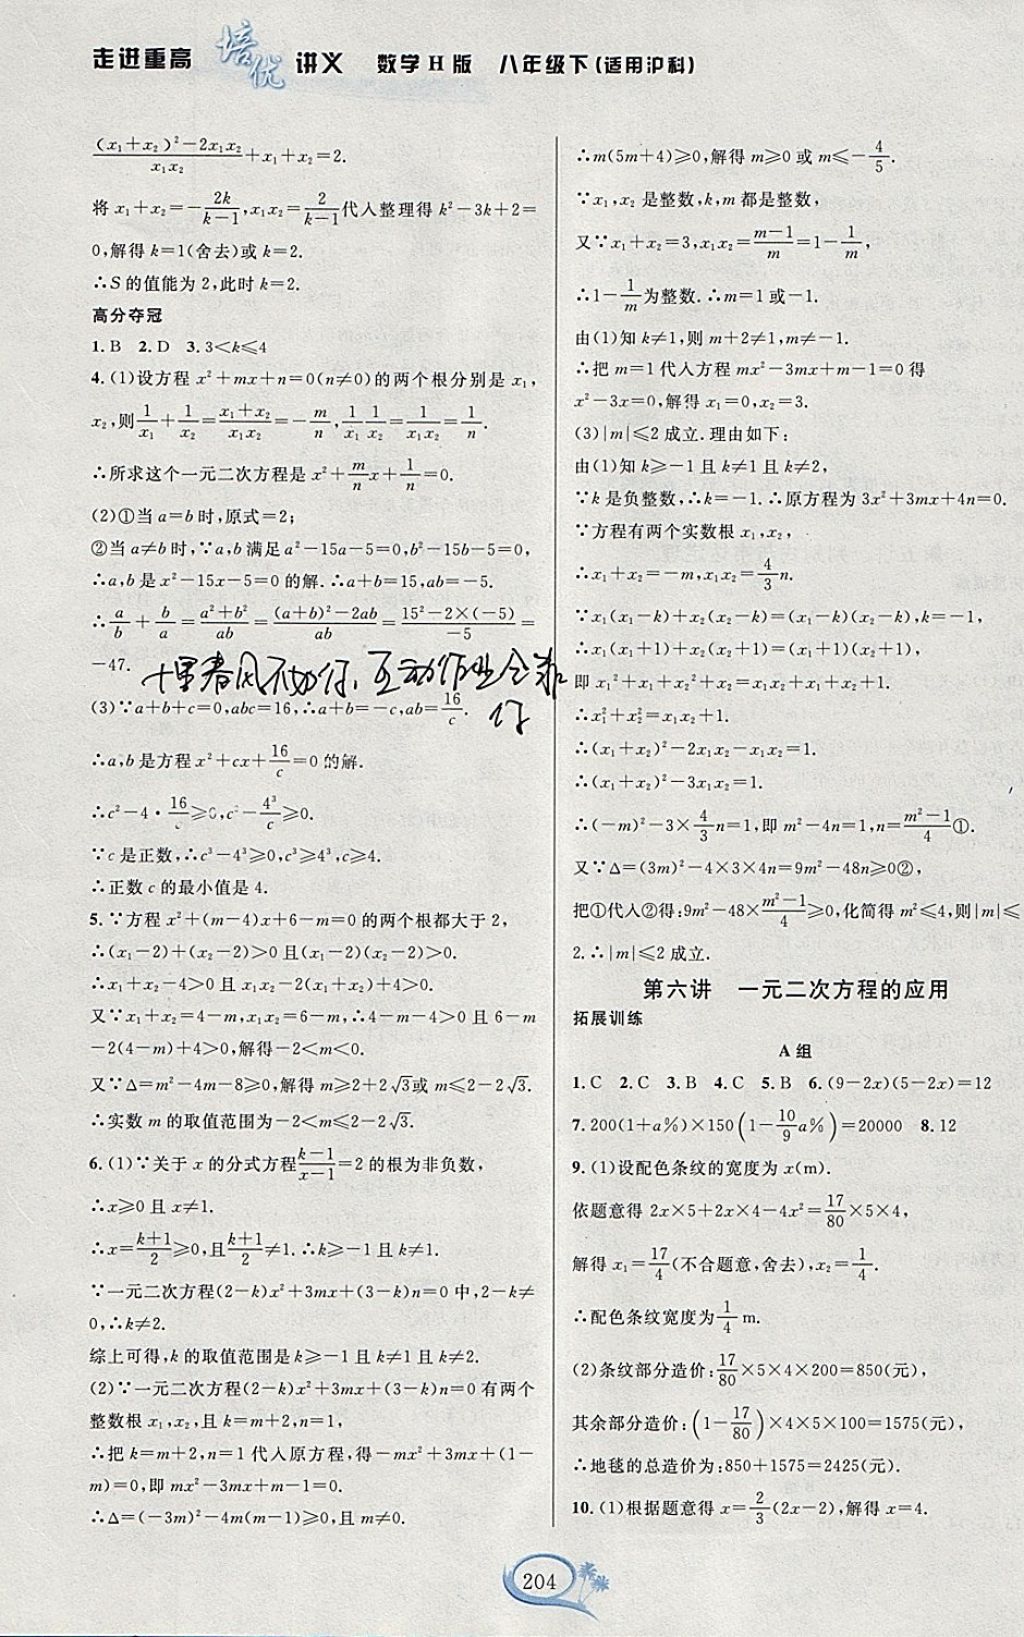 走进重高 培优 讲义 数学H版 八年级下(适用沪科)
\frac{(x₁+x₂)²-2x₁x₂}{x₁x₂}+x₁+x₂=2.
将 x₁+x₂=-\frac{2k}{k-1},x₁x₂=\frac{2}{k-1}代入整理得 k²-3k+2=
0,解得 k=1(舍去)或 k=2.
∴S的值能为2,此时k=2.
高分夺冠
1.B 2.D 3.3<k≤4
4.(1)设方程 x²+mx+n=0(n≠0)的两个根分别是 x₁,
x₂,则\frac{1}{x₁}+\frac{1}{x₂}=\frac{x₁+x₂}{x₁x₂}=-\frac{m}{n},\frac{1}{x₁}\frac{1}{x₂}=\frac{1}{x₁x₂}=\frac{1}{n}.
∴所求这个一元二次方程是 x²+\frac{m}{n}x+\frac{1}{n}=0.
(2)①当a=b时,原式=2;
②当a≠b时,∵a,b满足a²-15a-5=0,b²-15b-5=0,
∴a,b是x²-15x-5=0的解.∴a+b=15,ab=-5.
∴\frac{a}{b}+\frac{b}{a}=\frac{a²+b²}{ab}=\frac{(a+b)²-2ab}{ab}=\frac{15²-2×(-5)}{-5}=
-47.
十里春风不如你,互动作业全靠
你
(3)∵a+b+c=0,abc=16,∴a+b=-c,ab=\frac{16}{c}.
∴a,b是方程 x²+cx+\frac{16}{c}=0的解.
∴c²-4·\frac{16}{c}≥0,c²-\frac{4³}{c}≥0.
∵c是正数,∴c³-4³≥0,c³≥4³,c≥4.
∴正数c的最小值是4.
5.∵方程 x²+(m-4)x+6-m=0的两个根都大于2,
∴(x₁-2)+(x₂-2)>0且(x₁-2)(x₂-2)>0.
∴x₁+x₂-4>0且x₁x₂-2(x₁+x₂)+4>0.
又∵x₁+x₂=4-m,x₁x₂=6-m,∴4-m-4>0且6-m
-2(4-m)+4>0,解得-2<m<0.
又∵Δ=m²-4m-8≥0,解得m≥2+2√3或m≤2-2√3.
∴实数m的取值范围为-2<m≤2-2√3.
6.(1)∵关于x的分式方程\frac{k-1}{x-1}=2的根为非负数,
∴x≥0且x≠1.
∴x=\frac{k+1}{2}≥0,且\frac{k+1}{2}≠1.∴k≥-1且k≠1.
∵一元二次方程(2-k)x²+3mx+(3-k)n=0中,2-k≠
0,∴k≠2.
综上可得,k的取值范围是k≥-1且k≠1且k≠2.
(2)∵一元二次方程(2-k)x²+3mx+(3-k)n=0有两个
整数根x₁,x₂,且k=m+2,n=1,
∴把k=m+2,n=1代入原方程,得-mx²+3mx+(1-
m)=0,即mx²-3mx+m-1=0.
∴Δ=(-3m)²-4m(m-1)≥0,且m≠0.
∴m(5m+4)≥0,解得m≥0或m≤-\frac{4}{5}.
∵x₁,x₂是整数,k,m都是整数,
又∵x₁+x₂=3,x₁x₂=\frac{m-1}{m}=1-\frac{1}{m},
∴1-\frac{1}{m}为整数.∴m=1或-1.
由(1)知k≠1,则m+2≠1,m≠-1.
∴把m=1代入方程mx²-3mx+m-1=0得
x²-3x=0,解得x₁=0,x₂=3.
(3)|m|≤2成立.理由如下:
由(1)知k≥-1且k≠1且k≠2,
∵k是负整数,∴k=-1.∴原方程为3x²+3mx+4n=0.
∵方程有两个实数根x₁,x₂,
∴x₁+x₂=-m,x₁x₂=\frac{4}{3}n.
∵x₁(x₁-k)+x₂(x₂-k)=(x₁-k)(x₂-k),k=-1,
∴x₁(x₁+1)+x₂(x₂+1)=(x₁+1)(x₂+1),
即x₁²+x₁+x₂²+x₂=x₁x₂+x₁+x₂+1.
∴x₁²+x₂²=x₁x₂+1.
∴(x₁+x₂)²-2x₁x₂-x₁x₂=1.
∴(x₁+x₂)²-3x₁x₂=1.
∴(-m)²-3×\frac{4}{3}n=1,即m²-4n=1,n=\frac{m²-1}{4}①.
又∵Δ=(3m)²-4×3×4n=9m²-48n≥0②,
把①代入②得:9m²-48×\frac{m²-1}{4}≥0,化简得m²≤4,则|m|≤
2.∴|m|≤2成立.
第六讲 一元二次方程的应用
拓展训练
A组
1.C 2.C 3.B 4.C 5.B 6.(9-2x)(5-2x)=12
7.200(1+a%)×150(1-\frac{10}{9}a%)=20000 8.12
9.(1)设配色条纹的宽度为x(m).
依题意得2x×5+2x×4-4x²=\frac{17}{80}×5×4,
解得x₁=\frac{17}{4}(不合题意,舍去),x₂=\frac{1}{4}.
∴配色条纹宽度为\frac{1}{4} m.
(2)条纹部分造价:\frac{17}{80}×5×4×200=850(元),
其余部分造价:(1-\frac{17}{80})×4×5×100=1575(元),
∴地毯的总造价为:850+1575=2425(元).
10.(1)根据题意得x=\frac{2}{3}(2x-2),解得x=4.
204